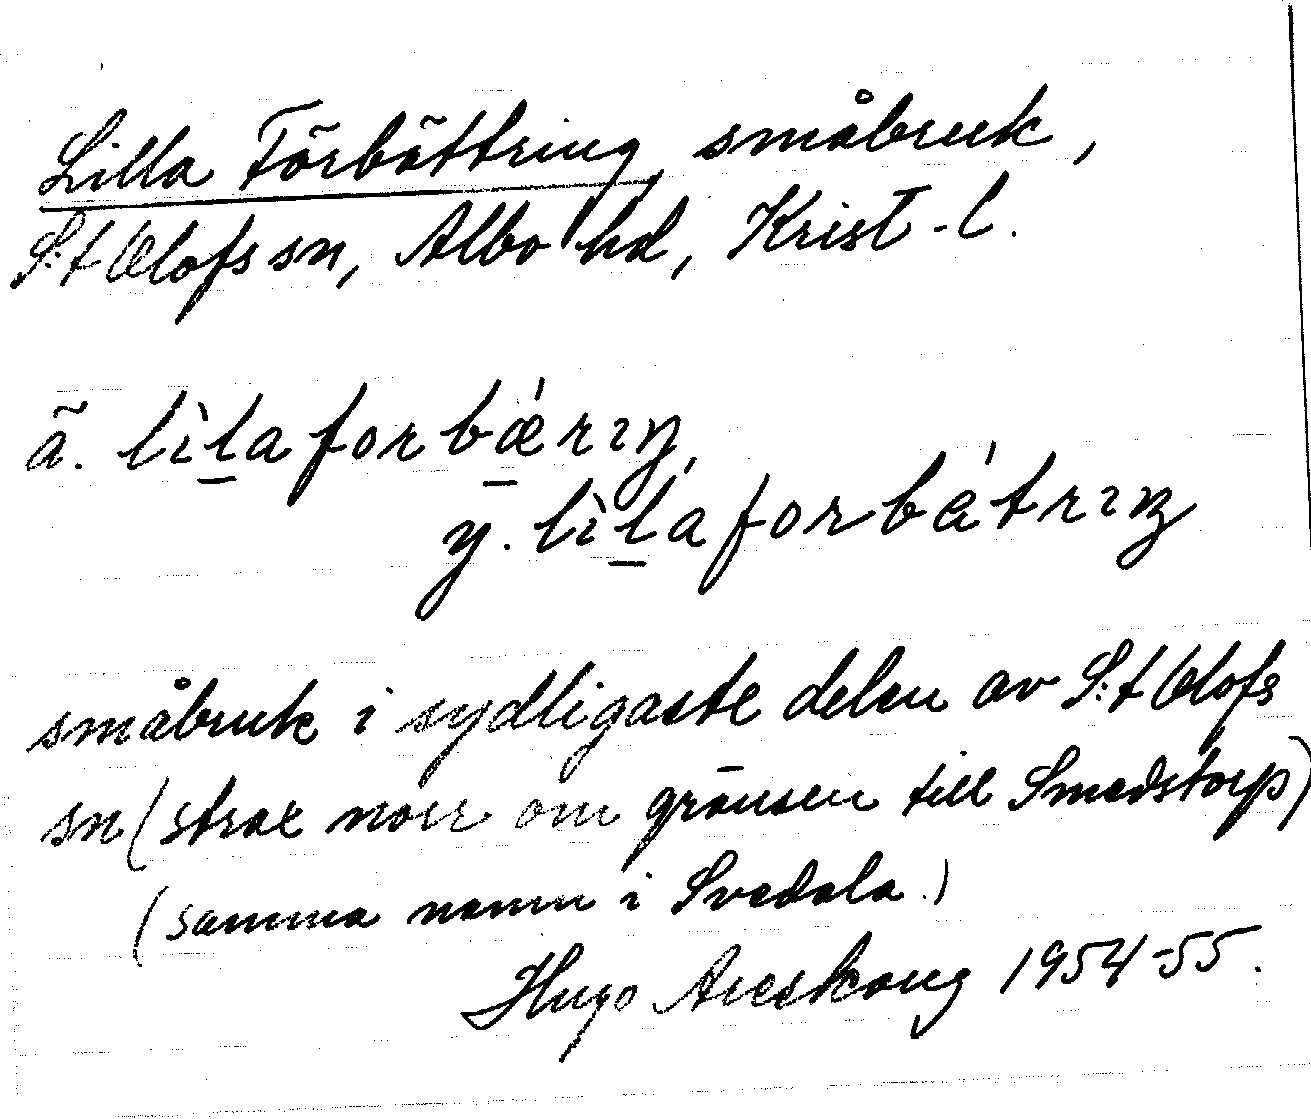 Lilla Förbättring, småbruk,
S:t Olofs sn, Albo hd, Krist-l.
ä. lìlaforbǽrıŋ,
y. lìlaforbátrıŋ
småbruk i sydligaste delen av S:t Olofs
sn (strax norr om gränsen till Smedstorp)
(samma namn i Svedala.)
Hugo Areskoug 1954-55.